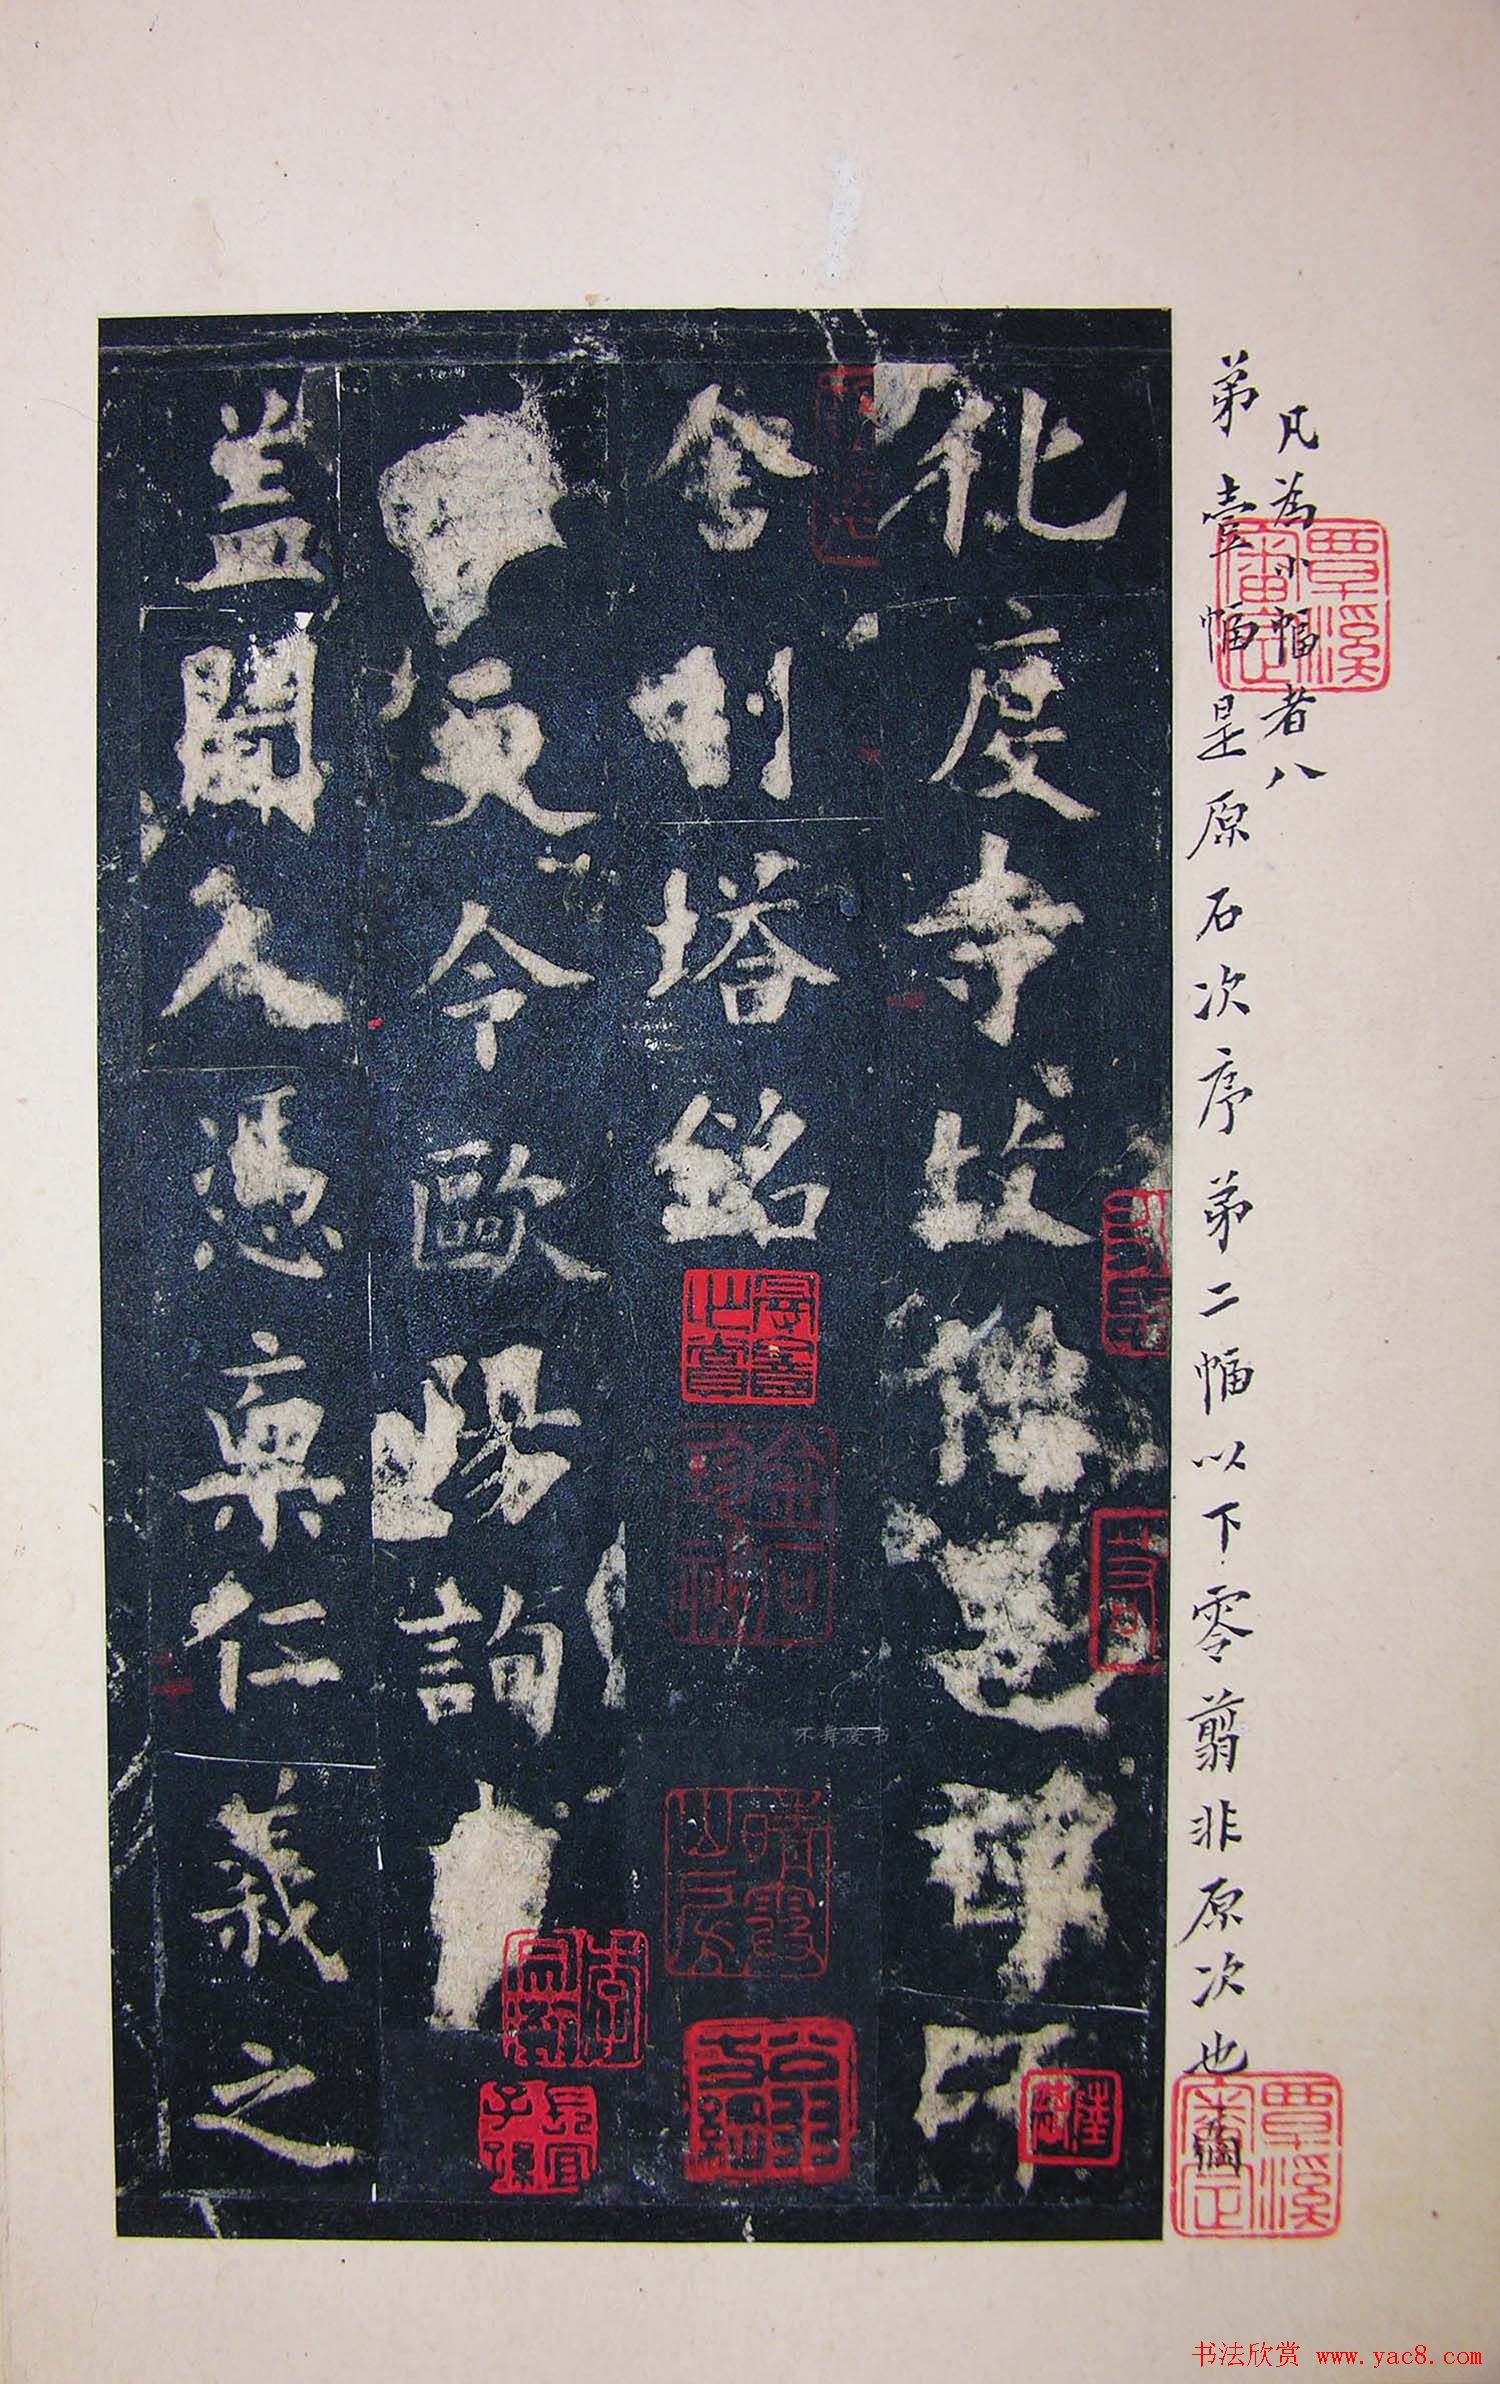 凡為小幅者八
弟壹幅是原石次序弟二幅以下零翦非原次也 方綱
覃溪審定
化度寺故僧邕禪師
舍利塔銘
更令歐陽詢
盖聞人憑稟仁義之
覃溪審定
不舞爱书
书法欣赏 www.yac8.com